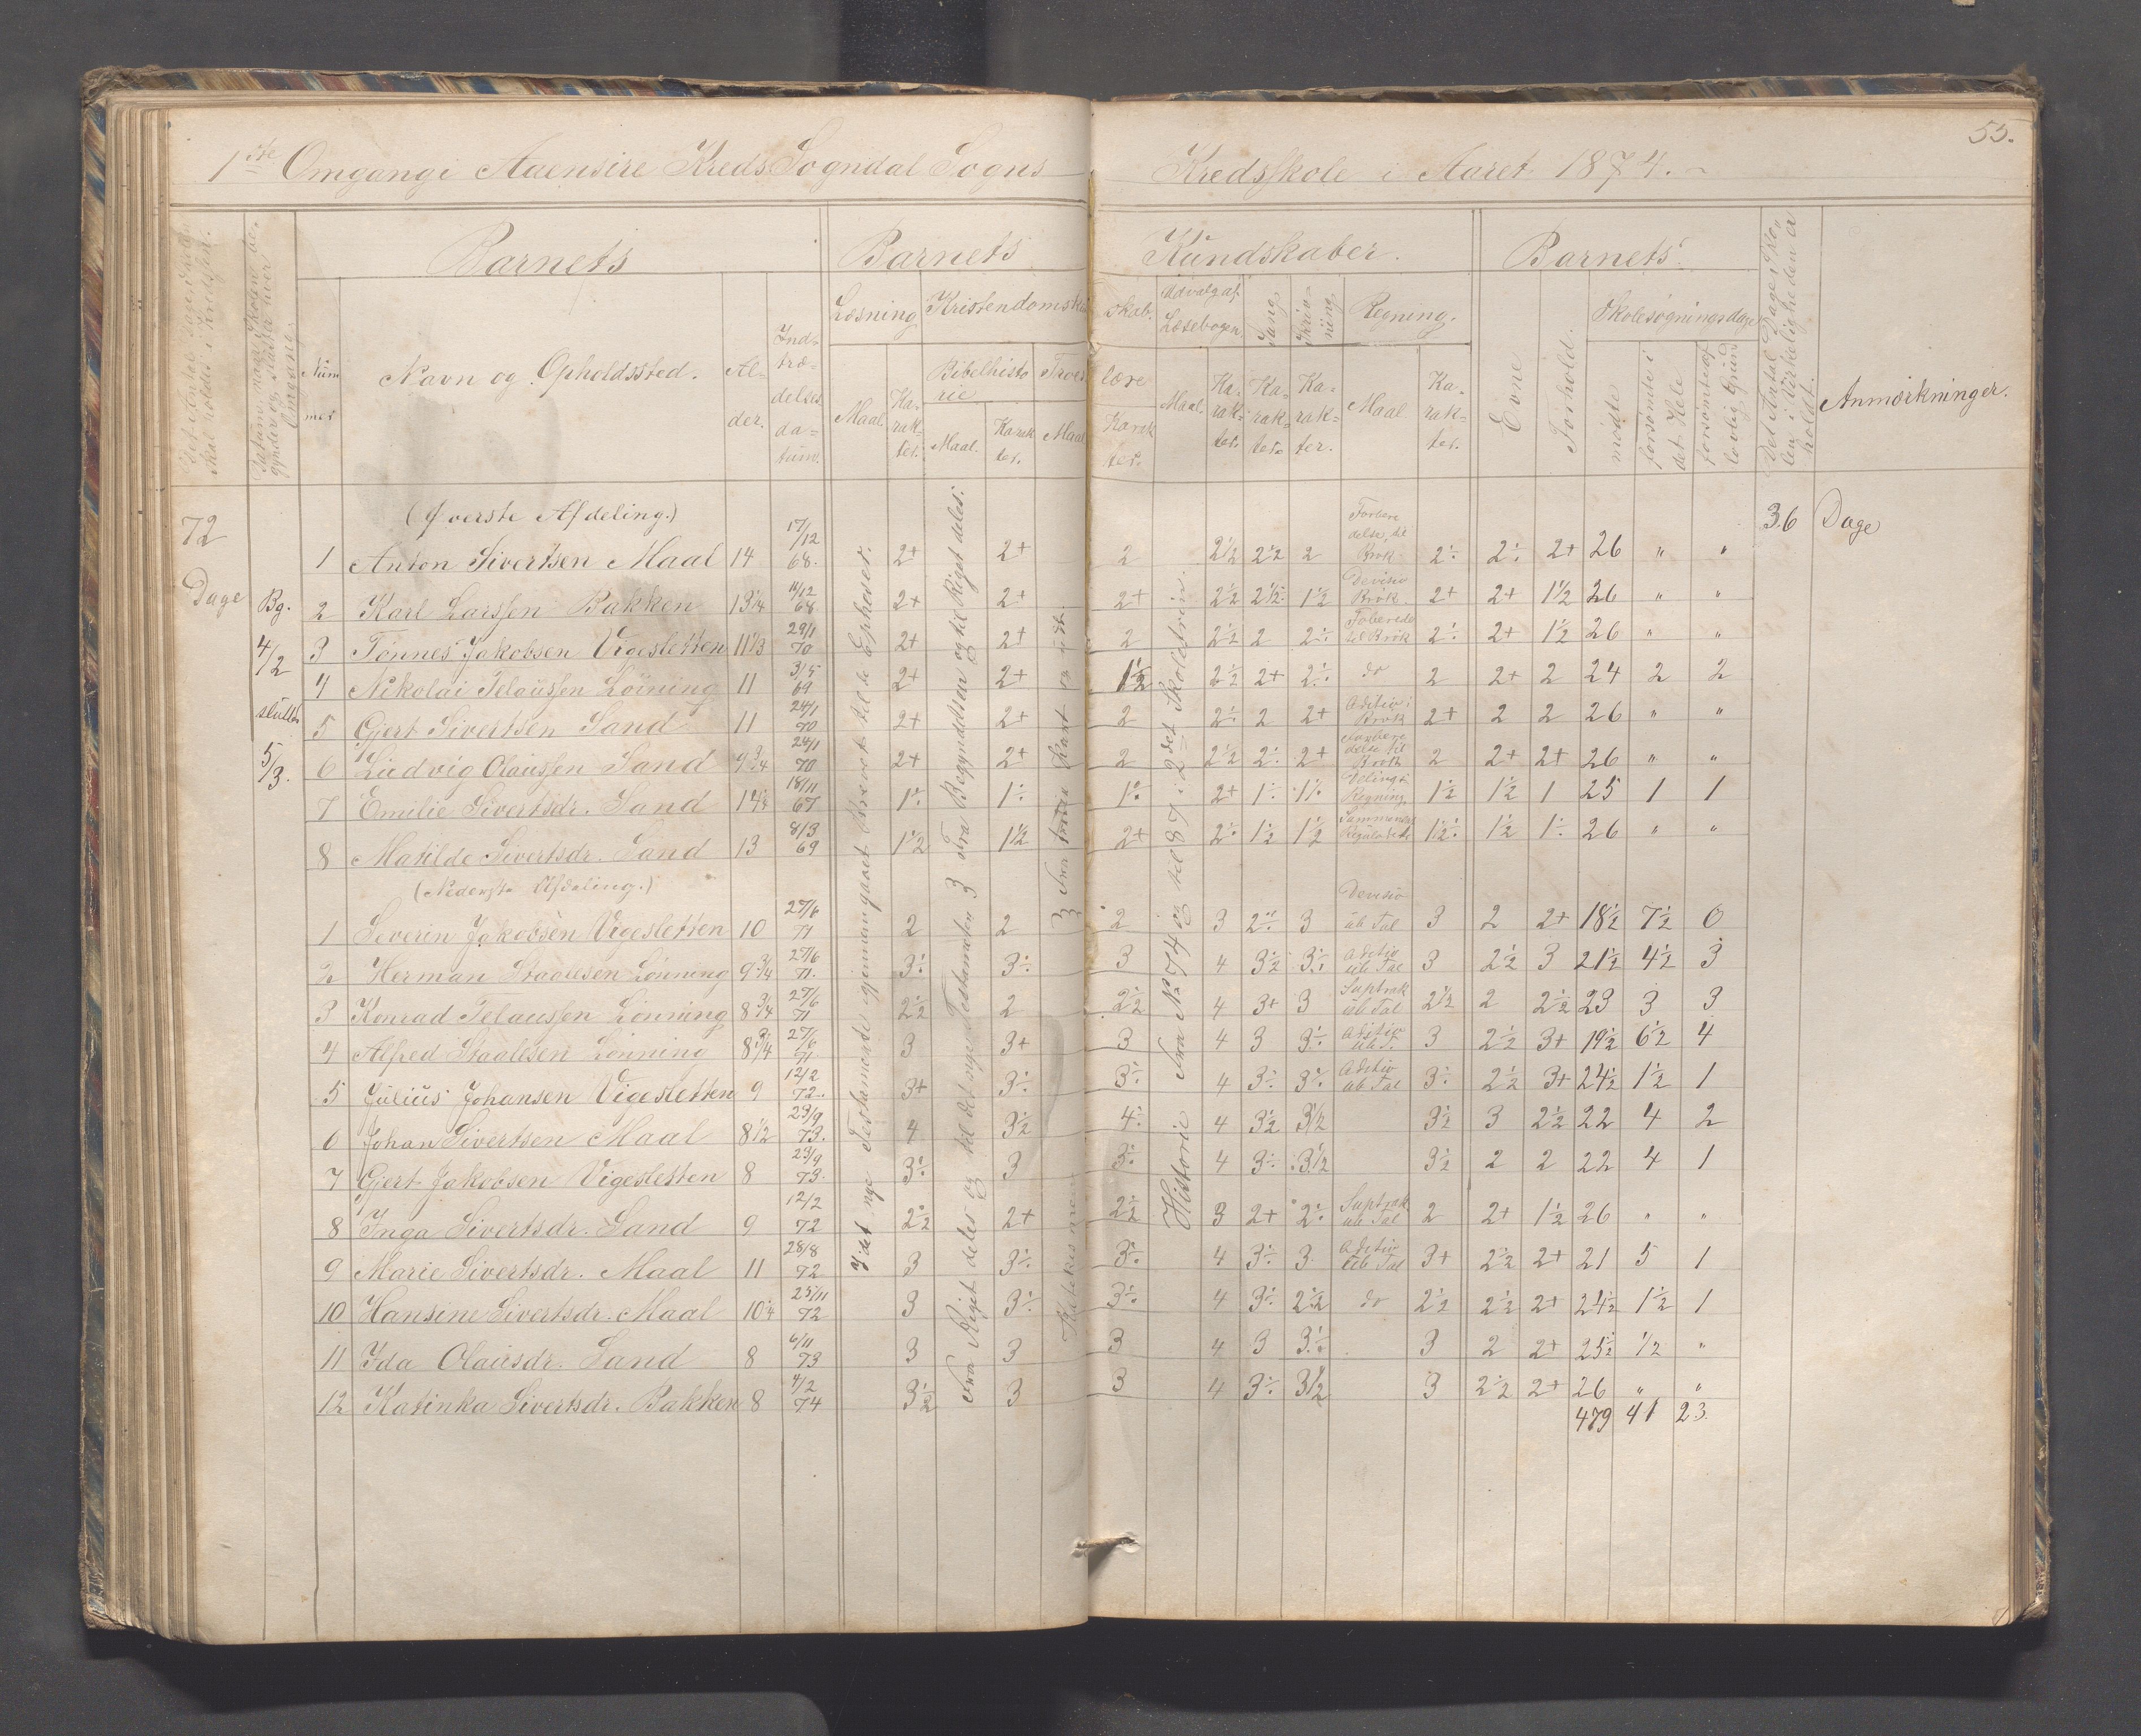 55.
1ste Omgang i Aaensire Kreds Sogndal Sogns Kredsskole i Aaret 1874.
Barnets Barnets Kundskaber. Barnets
Læsning Kristendomskundskab. Udvalg af Læsebogen. Sang Skrivning Regning. Evne Forhold. Skolesøgningsdage
Nummer Navn og Opholdssted. Alder. Indtrædelsesdatum. Maal. Karakter. Bibelhistorie Maal. Karakter. Troeslære Maal Karakter. Maal. Karakter. Karakter. Karakter. Maal Karakter. mødte forsømte i det Hele forsømte af lovlig Grund Anmærkninger.
72 Dage
Bg. 4/2 sluttes 5/3.
36 Dage
(Øverste Afdeling.)
1 Anton Sivertsen Maal 14 17/12 68. 2+ 2+ 2 2½ 2½ 2 Forberedelse til Brøk 2÷ 2÷ 2+ 26 " "
2 Karl Larssen Bakken 13¼ 11/12 68 2+ 2+ 2+ 2½ 2½ 1½ Devisio Brøk. 2+ 2+ 1½ 26 " "
3 Tønnes Jakobsen Vigesletten 11⅓ 29/1 70 2+ 2+ 2 2½ 2 2÷ Foberede til Brøk 2÷ 2+ 1½ 26 " "
4 Nikolai Pelaussen Løining 11 3/5 69 2+ 2+ 1½ 2½ 2+ 2÷ do 2 2+ 2 24 2 2
5 Gjert Sivertsen Sand 11 24/1 70 2+ 2+ 2 2÷ 2 2+ Aditio i Brøk 2+ 2 2 26 " "
6 Ludvig Olaussen Sand 9¾ 24/1 70 2+ 2+ 2 2½ 2÷ 2+ 2 2+ 2+ 26 " "
7 Emilie Sivertsdr. Sand 14½ 18/11 67 1÷ 1÷ 1÷ 2+ 1÷ 1÷ Deling i Regning 1½ 1½ 1 25 1 1
8 Matilde Sivertsdr. Sand 13 8/3 69 1½ 1½ 2+ 2÷ 1½ 1½ 1½ 1½ 1÷ 26 " "
(Nederste Afdeling.)
1 Severin Jakobsen Vigesletten 10 27/6 71 2 2 2 3 2÷ 3 Devisio ub Tal 3 2 2+ 18½ 7½ 0
2 Herman Staalesen Lønning 9¾ 27/6 71. 3÷ 3÷ 3 4 3½ 3÷ Aditio ub Tal 3 2½ 3 21½ 4½ 3
3 Konrad Pelaussen Lønning 8¾ 27/6 71 2½ 2 2½ 4 3+ 3 Suptrak ub Tal 2½ 2 2½ 23 3 3
4 Alfred Staalesen Lønning 8¾ 27/6 71 3 3+ 3 4 3 3÷ Aditio ub T. 3 2½ 3+ 19½ 6½ 4
5 Julius Johansen Vigesletten 9 12/2 72. 3+ 3÷ 3÷ 4 3÷ 3÷ Aditio ub Tal 3÷ 2½ 3+ 24½ 1½ 1
6 Johan Sivertsen Maal 8½ 23/9 73. 4 3½ 4÷ 4 3½ 3½ 3½ 3 2½ 22 4 2
7 Gjert Jakobsen Vigesletten 8 23/9 73. 3÷ 3 3÷ 4 3÷ 3½ 3½ 2 2 22 4 1
8 Inga Sivertsdr. Sand 9 12/2 72 2½ 2+ 2½ 3 2+ 2÷ Suptrak ub Tal 2 2+ 1½ 26 " "
9 Marie Sivertsdr. Maal 11 28/8 72 3 3÷ 3÷ 4 3÷ 3 Aditio ub Tal 3+ 2½ 2+ 21 5 1
10 Hansine Sivertsdr. Maal 10¼ 25/11 72 3 3÷ 3÷ 4 3÷ 2½ do 2½ 2½ 2+ 24½ 1½ 1
11 Ida Olausdr. Sand 8 6/11 73 3 3 3 4 3 3÷ 3 2 2+ 25½ ½ "
12 Katinka Sivertsdr. Bakken 8 4/2 74 3½ 3 3 4 3÷ 3½ 3 2½ 2+ 26 " "
479 41 23.
I det nye Testamente gjennemgaaet
Fra Riget deles og til det nye Testamente. 3 Fra Begyndelsen og til Riget deles.
Historie Fra No 74 og til 87 i 2det Skoletrin.